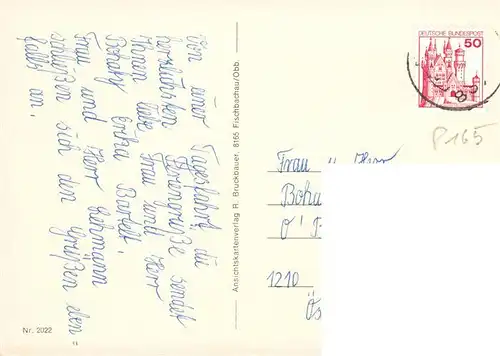 Von einer Tagesfahrt, die
herzlichsten Grüße sendet
Ihnen liebe Frau und Herr
Erika Bartelt.
Frau und Herr
schließen sich den Grüßen eben
falls an.
Nr. 2022
Ansichtskartenverlag R. Bruckbauer, 8165 Fischbachau/Obb.
DEUTSCHE BUNDESPOST
50
P165
Frau u. Herr
1210